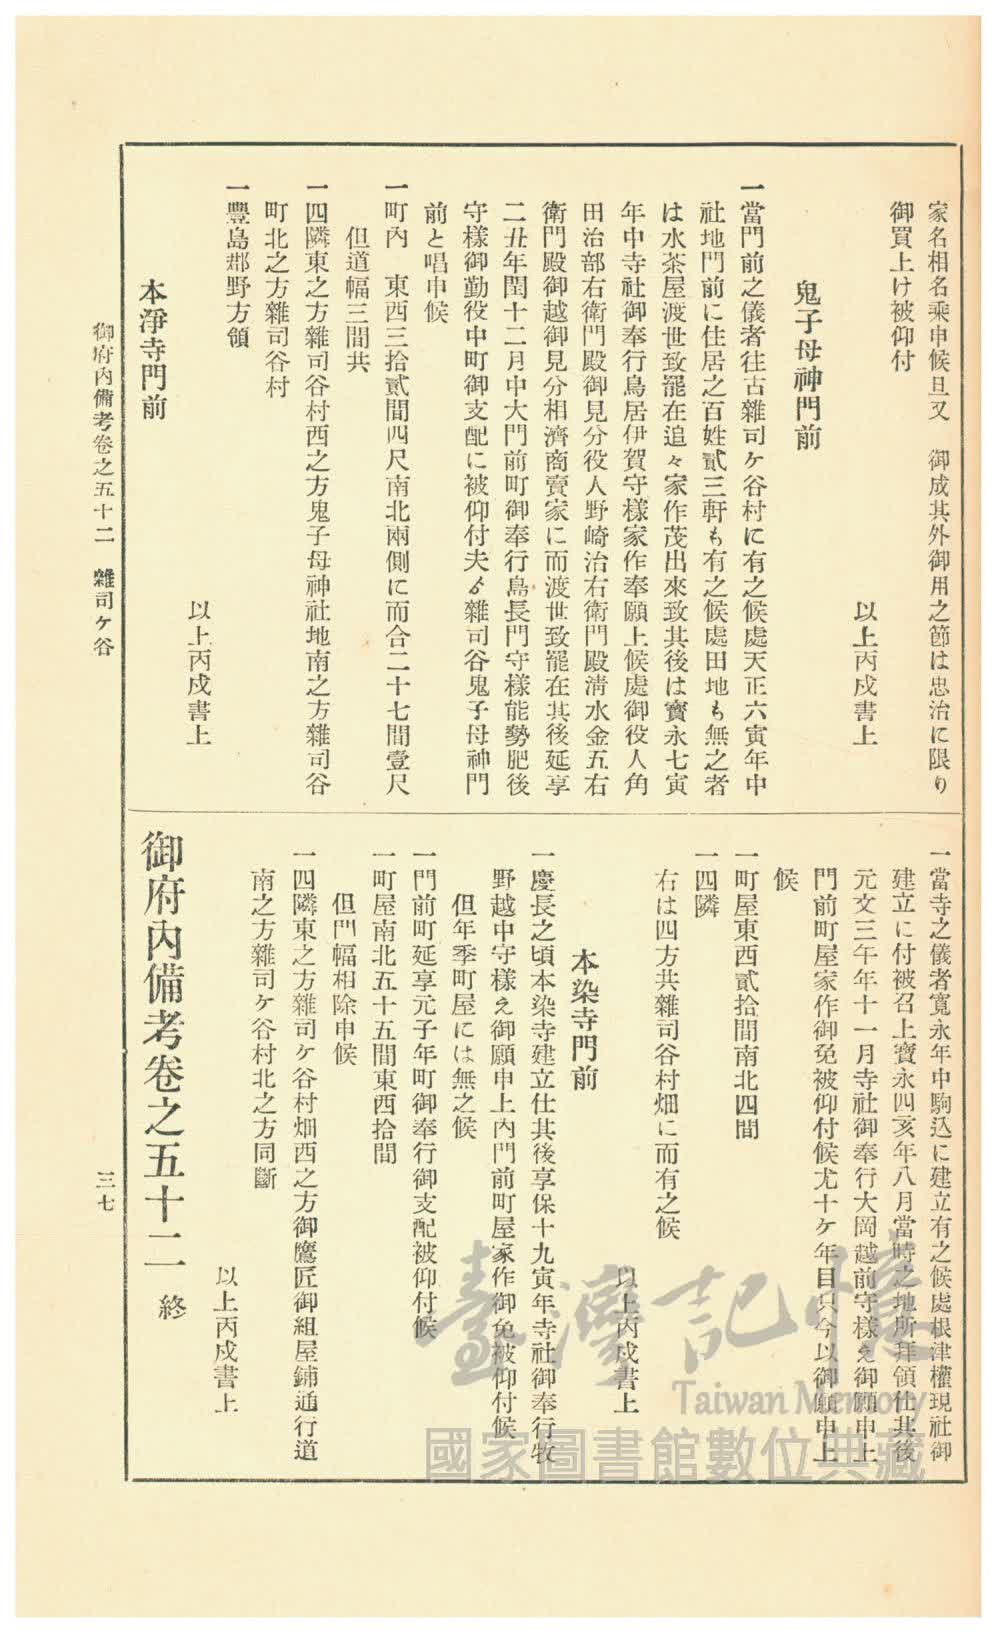 家名相名乘申候且又　御成其外御用之節は忠治に限り
御買上け被仰付
以上丙戌書上
鬼子母神門前
一當門前之儀者往古雜司ケ谷村に有之候處天正六寅年中
社地門前に住居之百姓貳三軒も有之候處田地も無之者
は水茶屋渡世致罷在追々家作茂出來致其後は寳永七寅
年中寺社御奉行鳥居伊賀守樣家作奉願上候處御役人角
田治部右衛門殿御見分役人野崎治右衛門殿淸水金五右
衛門殿御越御見分相濟商賣家に而渡世致罷在其後延享
二丑年閏十二月中大門前町御奉行島長門守樣能勢肥後
守樣御勤役中町御支配に被仰付夫ゟ雜司谷鬼子母神門
前と唱申候
一町內　東西三拾貳間四尺南北兩側に而合二十七間壹尺
但道幅三間共
一四隣東之方雜司谷村西之方鬼子母神社地南之方雜司谷
町北之方雜司谷村
一豐島郡野方領
以上丙戌書上
本淨寺門前
一當寺之儀者寬永年中駒込に建立有之候處根津權現社御
建立に付被召上寳永四亥年八月當時之地所拜領仕其後
元文三午年十一月寺社御奉行大岡越前守樣え御願申上
門前町屋家作御免被仰付候尤十ケ年目只今以御願申上
候
一町屋東西貳拾間南北四間
一四隣
右は四方共雜司谷村畑に而有之候
以上丙戌書上
本染寺門前
一慶長之頃本染寺建立仕其後享保十九寅年寺社御奉行牧
野越中守樣え御願申上內門前町屋家作御免被仰付候
但年季町屋には無之候
一門前町延享元子年町御奉行御支配被仰付候
一町屋南北五十五間東西拾間
但門幅相除申候
一四隣東之方雜司ケ谷村畑西之方御鷹匠御組屋鋪通行道
南之方雜司ケ谷村北之方同斷
以上丙戌書上
御府內備考卷之五十二　終
御府內備考卷之五十二　雜司ケ谷
三七
臺灣記憶
Taiwan Memory
國家圖書館數位典藏